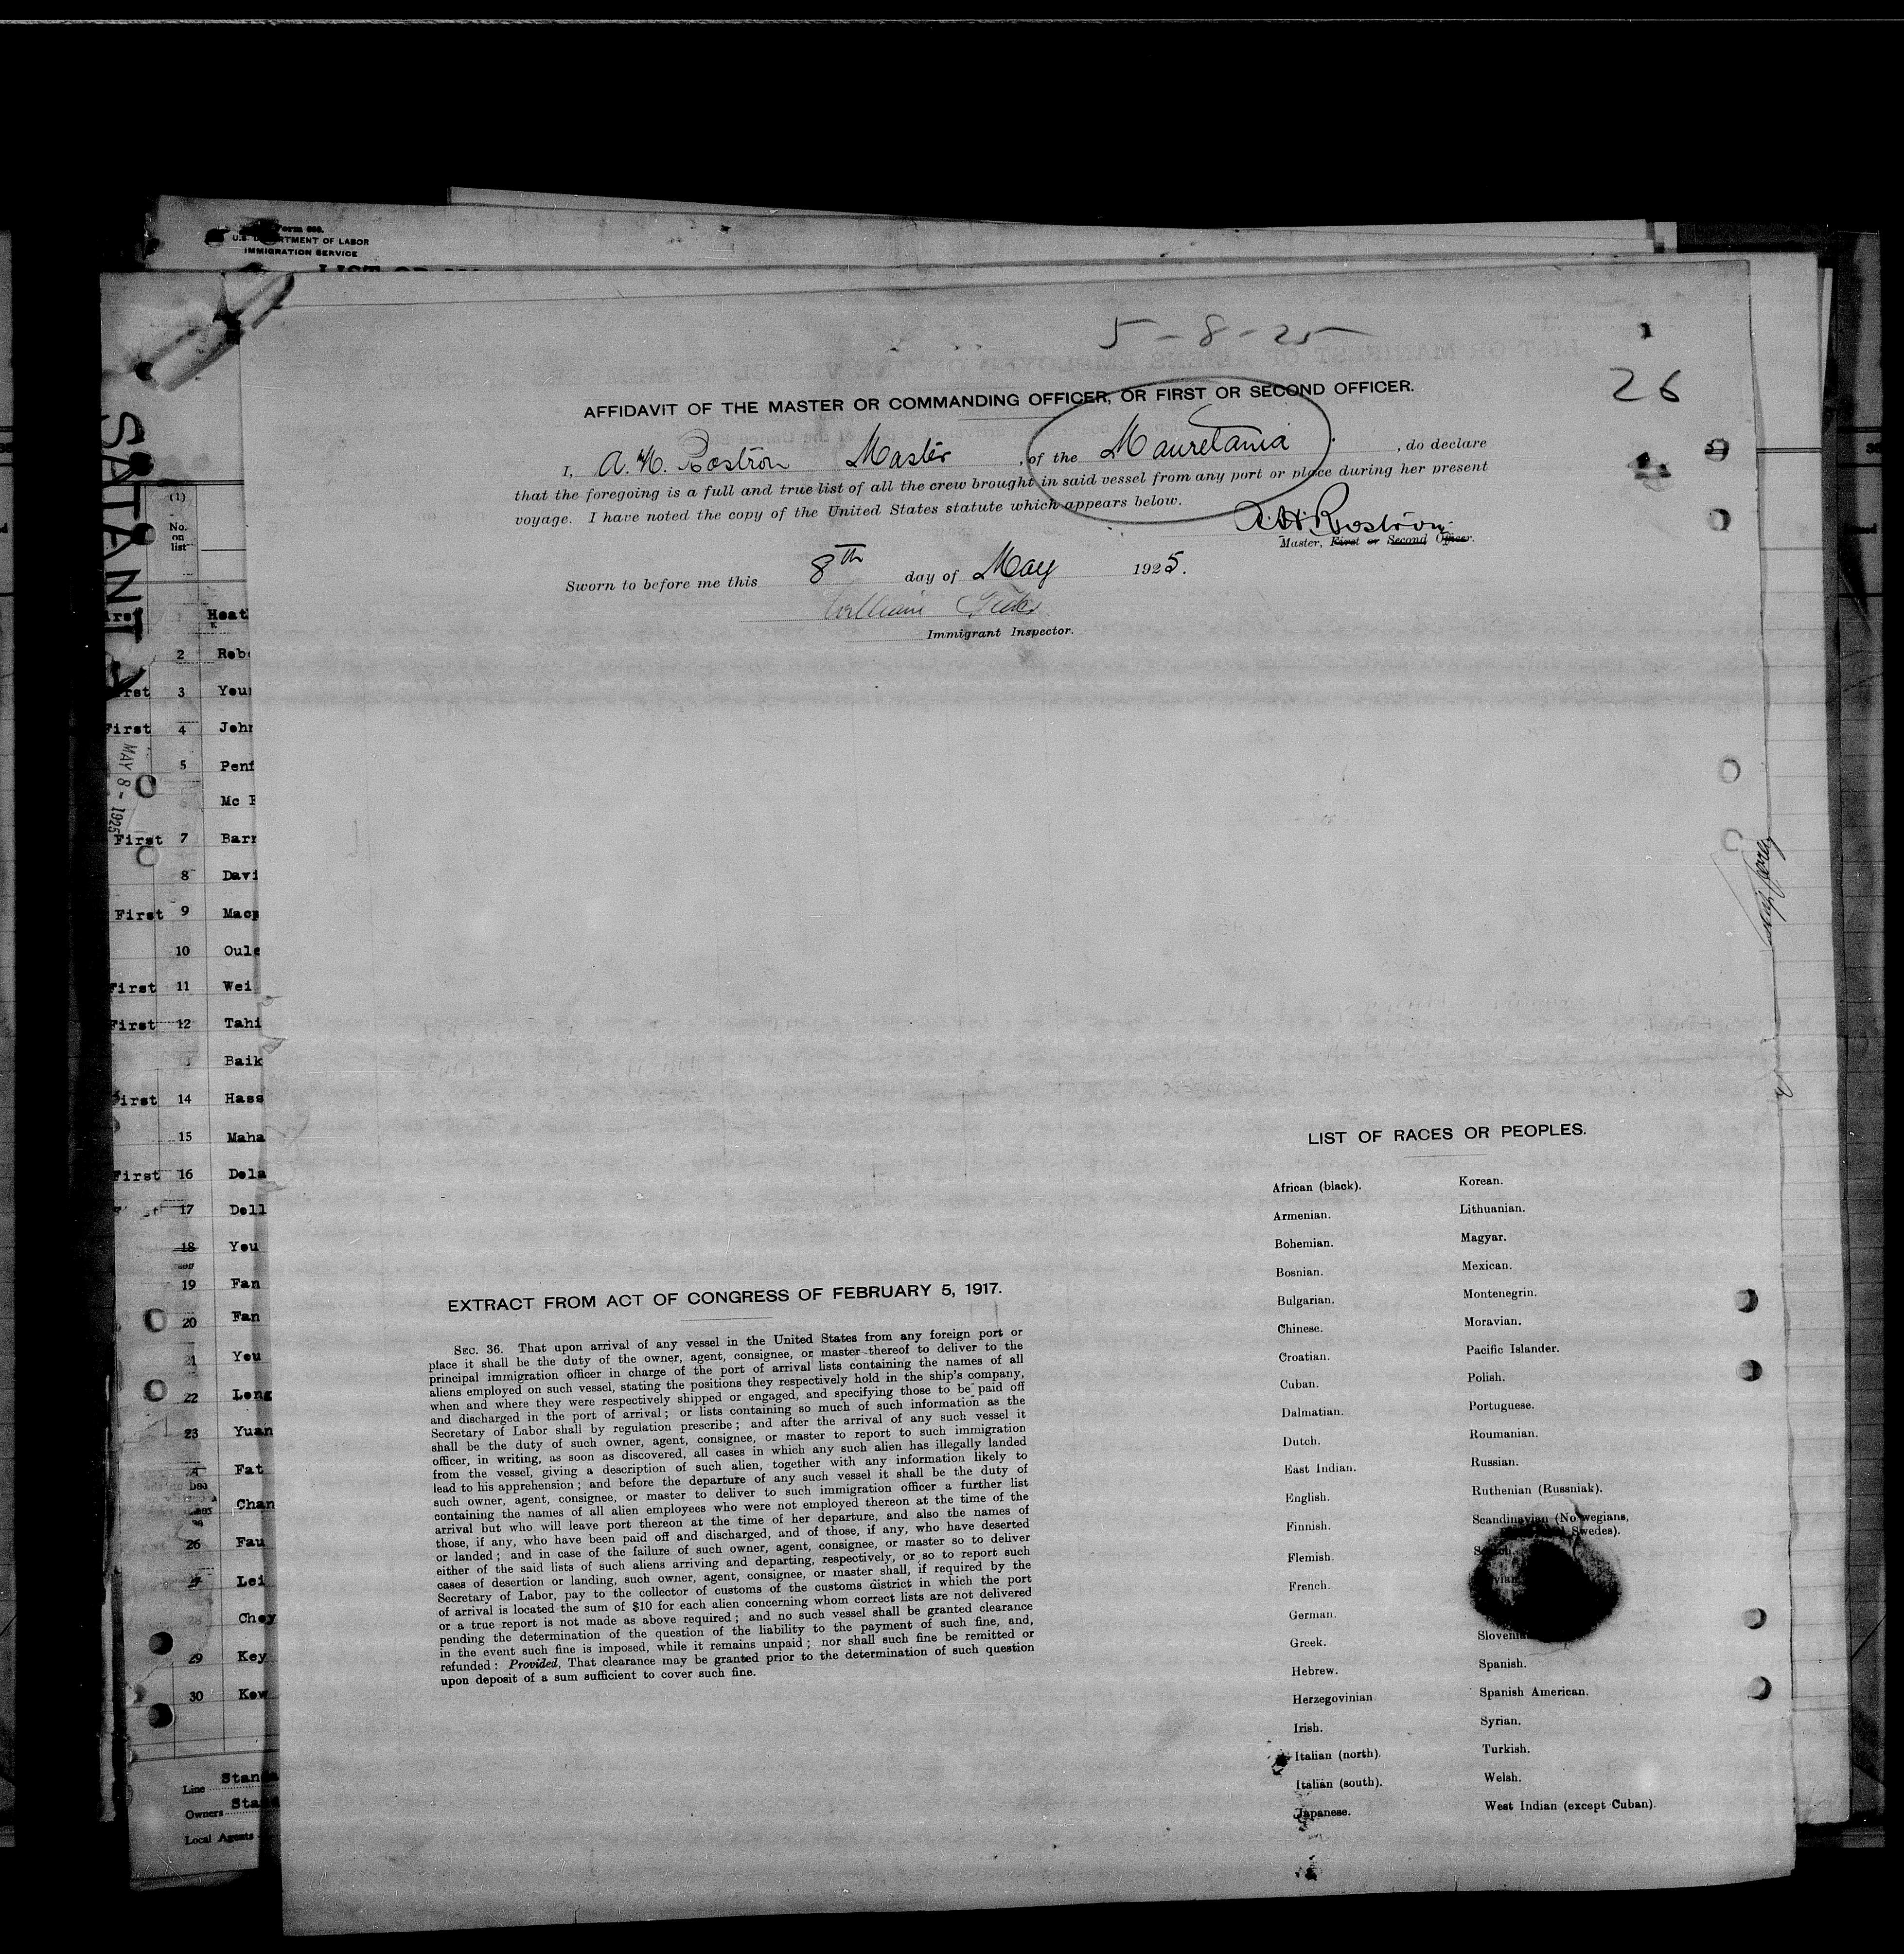 Form 680.
U.S. DEPARTMENT OF LABOR
IMMIGRATION SERVICE
5-8-25
26
AFFIDAVIT OF THE MASTER OR COMMANDING OFFICER, OR FIRST OR SECOND OFFICER.
I, A. H. Rostron Master, of the Mauretania, do declare
that the foregoing is a full and true list of all the crew brought in said vessel from any port or place during her present
voyage. I have noted the copy of the United States statute which appears below.
A. H. Rostron
Master, First or Second Officer.
Sworn to before me this 8th day of May 1925.
William
Immigrant Inspector.
SATANTA
MAY 8 - 1925
(1)
No.
on
list
Heat
2 Robe
First 3 Your
First 4 John
5 Penf
Mc
First 7 Barr
8 Davi
First 9 Macp
10 Oule
First 11 Wei
First 12 Tahi
Baik
First 14 Hass
15 Maha
First 16 Dela
17 Dell
18 You
19 Fan
20 Fan
21 You
22 Leng
23 Yuan
Fat
Chan
26 Fau
27 Lei
28 Choy
29 Key
30 Kow
Line Standa
Owners Stand
Local Agents
EXTRACT FROM ACT OF CONGRESS OF FEBRUARY 5, 1917.
SEC. 36. That upon arrival of any vessel in the United States from any foreign port or
place it shall be the duty of the owner, agent, consignee, or master thereof to deliver to the
principal immigration officer in charge of the port of arrival lists containing the names of all
aliens employed on such vessel, stating the positions they respectively hold in the ship's company,
when and where they were respectively shipped or engaged, and specifying those to be paid off
and discharged in the port of arrival; or lists containing so much of such information as the
Secretary of Labor shall by regulation prescribe; and after the arrival of any such vessel it
shall be the duty of such owner, agent, consignee, or master to report to such immigration
officer, in writing, as soon as discovered, all cases in which any such alien has illegally landed
from the vessel, giving a description of such alien, together with any information likely to
lead to his apprehension; and before the departure of any such vessel it shall be the duty of
such owner, agent, consignee, or master to deliver to such immigration officer a further list
containing the names of all alien employees who were not employed thereon at the time of the
arrival but who will leave port thereon at the time of her departure, and also the names of
those, if any, who have been paid off and discharged, and of those, if any, who have deserted
or landed; and in case of the failure of such owner, agent, consignee, or master so to deliver
either of the said lists of such aliens arriving and departing, respectively, or so to report such
cases of desertion or landing, such owner, agent, consignee, or master shall, if required by the
Secretary of Labor, pay to the collector of customs of the customs district in which the port
of arrival is located the sum of $10 for each alien concerning whom correct lists are not delivered
or a true report is not made as above required; and no such vessel shall be granted clearance
pending the determination of the question of the liability to the payment of such fine, and,
in the event such fine is imposed, while it remains unpaid; nor shall such fine be remitted or
refunded: Provided, That clearance may be granted prior to the determination of such question
upon deposit of a sum sufficient to cover such fine.
LIST OF RACES OR PEOPLES.
African (black).
Armenian.
Bohemian.
Bosnian.
Bulgarian.
Chinese.
Croatian.
Cuban.
Dalmatian.
Dutch.
East Indian.
English.
Finnish.
Flemish.
French.
German.
Greek.
Hebrew.
Herzegovinian
Irish.
Italian (north).
Italian (south).
Japanese.
Korean.
Lithuanian.
Magyar.
Mexican.
Montenegrin.
Moravian.
Pacific Islander.
Polish.
Portuguese.
Roumanian.
Russian.
Ruthenian (Russniak).
Scandinavian (Norwegians,
Swedes).
Spanish.
Spanish American.
Syrian.
Turkish.
Welsh.
West Indian (except Cuban).